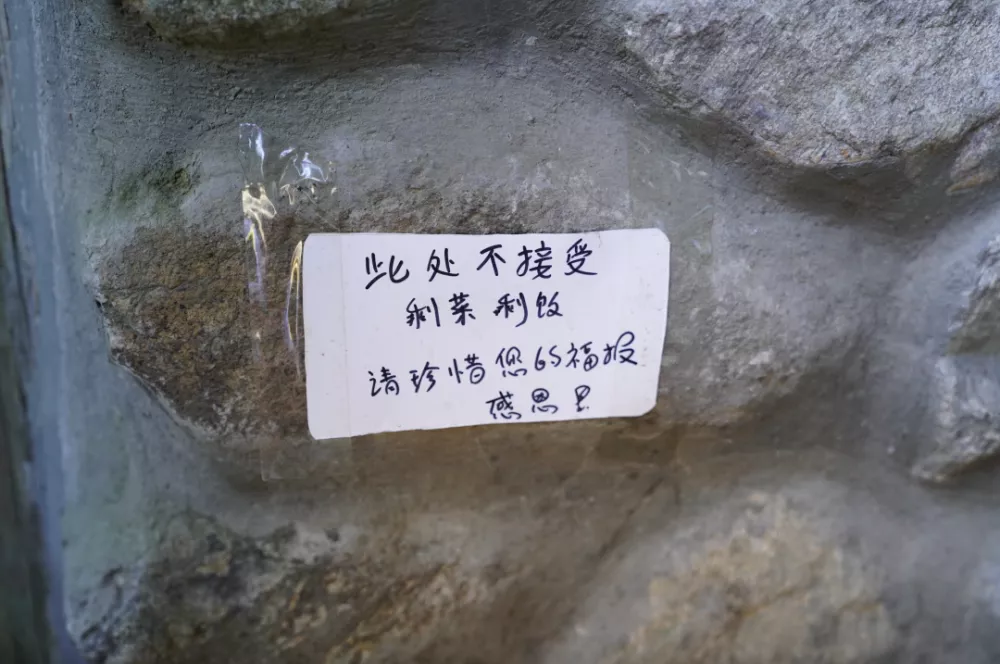 此处不接受
剩菜剩饭
请珍惜您的福报
感恩里